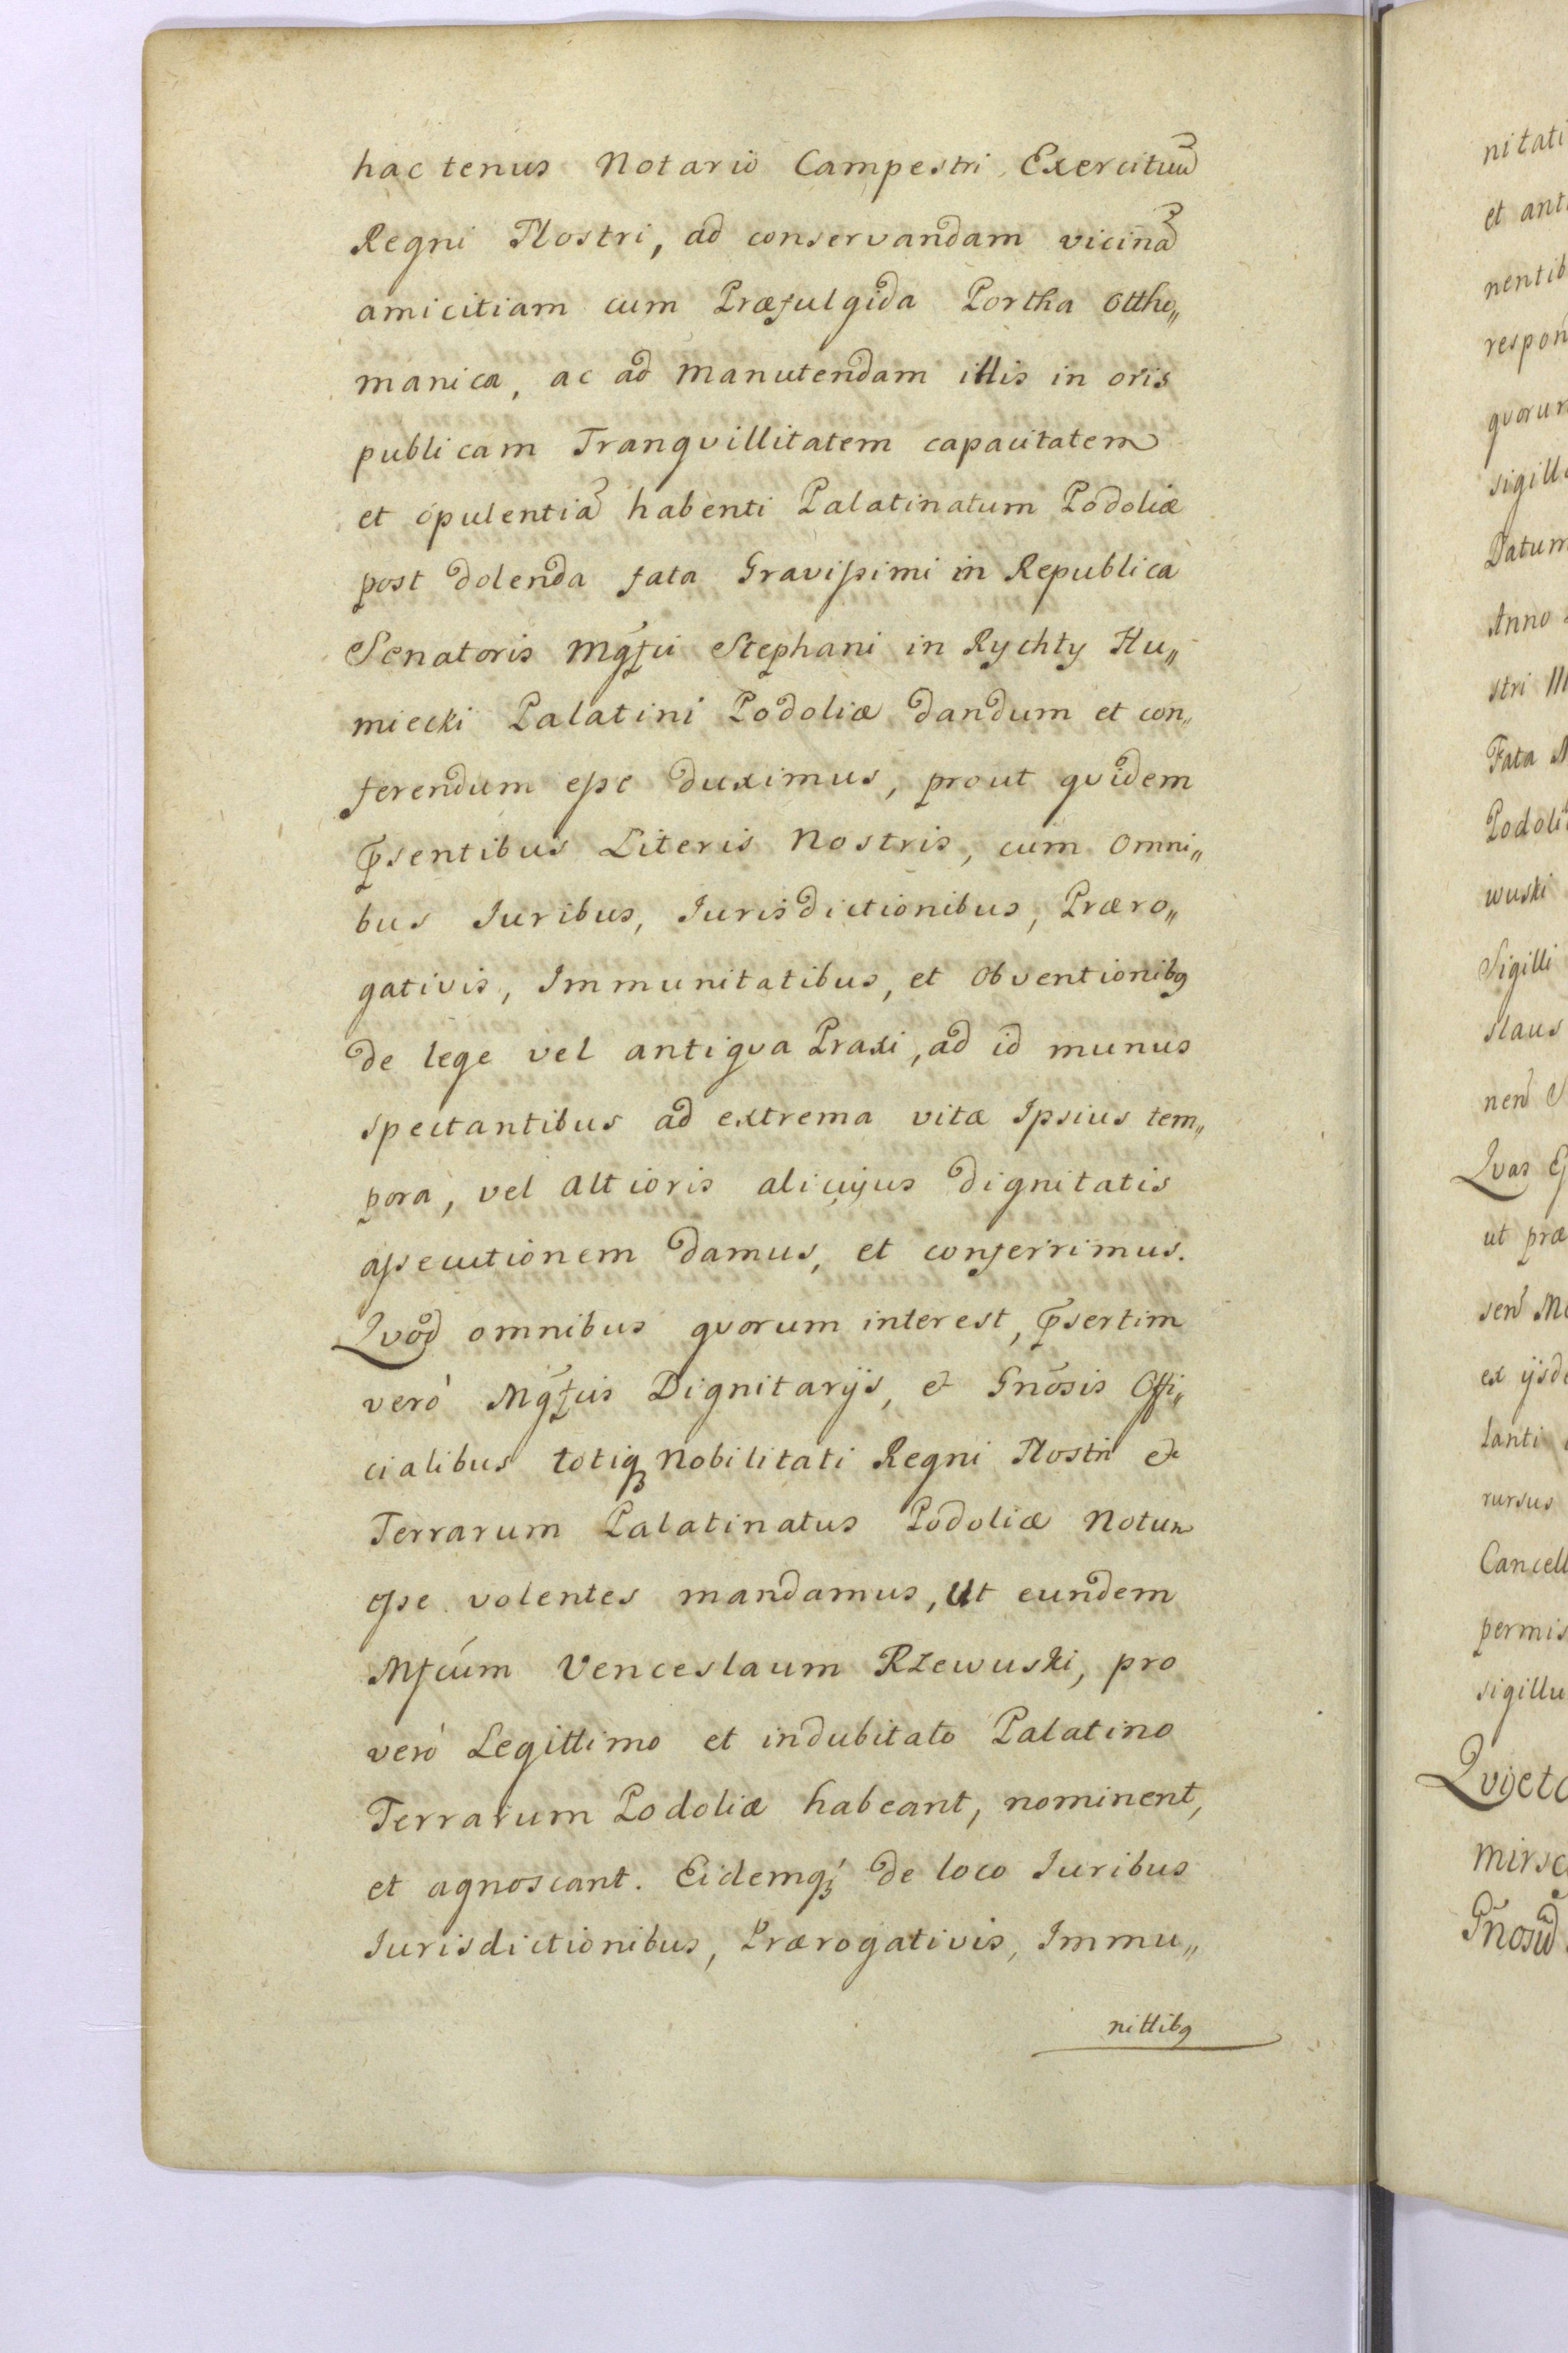 hactenus Notario Campestri Exercituū
Regni Nostri, ad conservandam vicinā
amicitiam cum Præfulgida Portha Ottho„
manica, ac ad manutendam illis in oris
publicam Tranqvillitatem capacitatem
et opulentiā habenti Palatinatum Podoliæ
post dolenda fata Gravissimi in Republica
Senatoris Mgfci Stephani in Rychty Hu„
miecki Palatini Podoliæ dandum et con„
ferendum esse duximus, prout qvidem
p̄sentibus Literis Nostris, cum omni„
bus Iuribus, Iurisdictionibus, Præro„
gativis, Immunitatibus, et Obventionibq
de lege vel antiqva Praxi, ad id munus
spectantibus ad extrema vitæ Ipsius tem„
pora, vel altioris alicujus dignitatis
assecutionem damus, et conferrimus.
Qvod omnibus qvorum interest, p̄sertim
verò Mgfcis Dignitarijs, et Gnōsis Offi„
cialibus totiq₃ Nobilitati Regni Nostri et
Terrarum Palatinatus Podoliæ Notum
esse volentes mandamus, Ut eundem
Mfcum Venceslaum Rzewuski, pro
verò Legittimo et indubitato Palatino
Terrarum Podoliæ habeant, nominent,
et agnoscant. Eidemq₃ de loco Iuribus
Iurisdictionibus, Prærogativis, Immu„
nittibq
nitati
et ant
nentib
respon
qvorum
sigill
Datum
Anno
stri
Fata
Podoli
wuski
Sigilli
slaus
nen̄ S
Qvas
ut præ
sen̄
ex ijsd
lanti
rursus
Cancell
permis
sigillu
Qvijet
mirsc
Gnosū